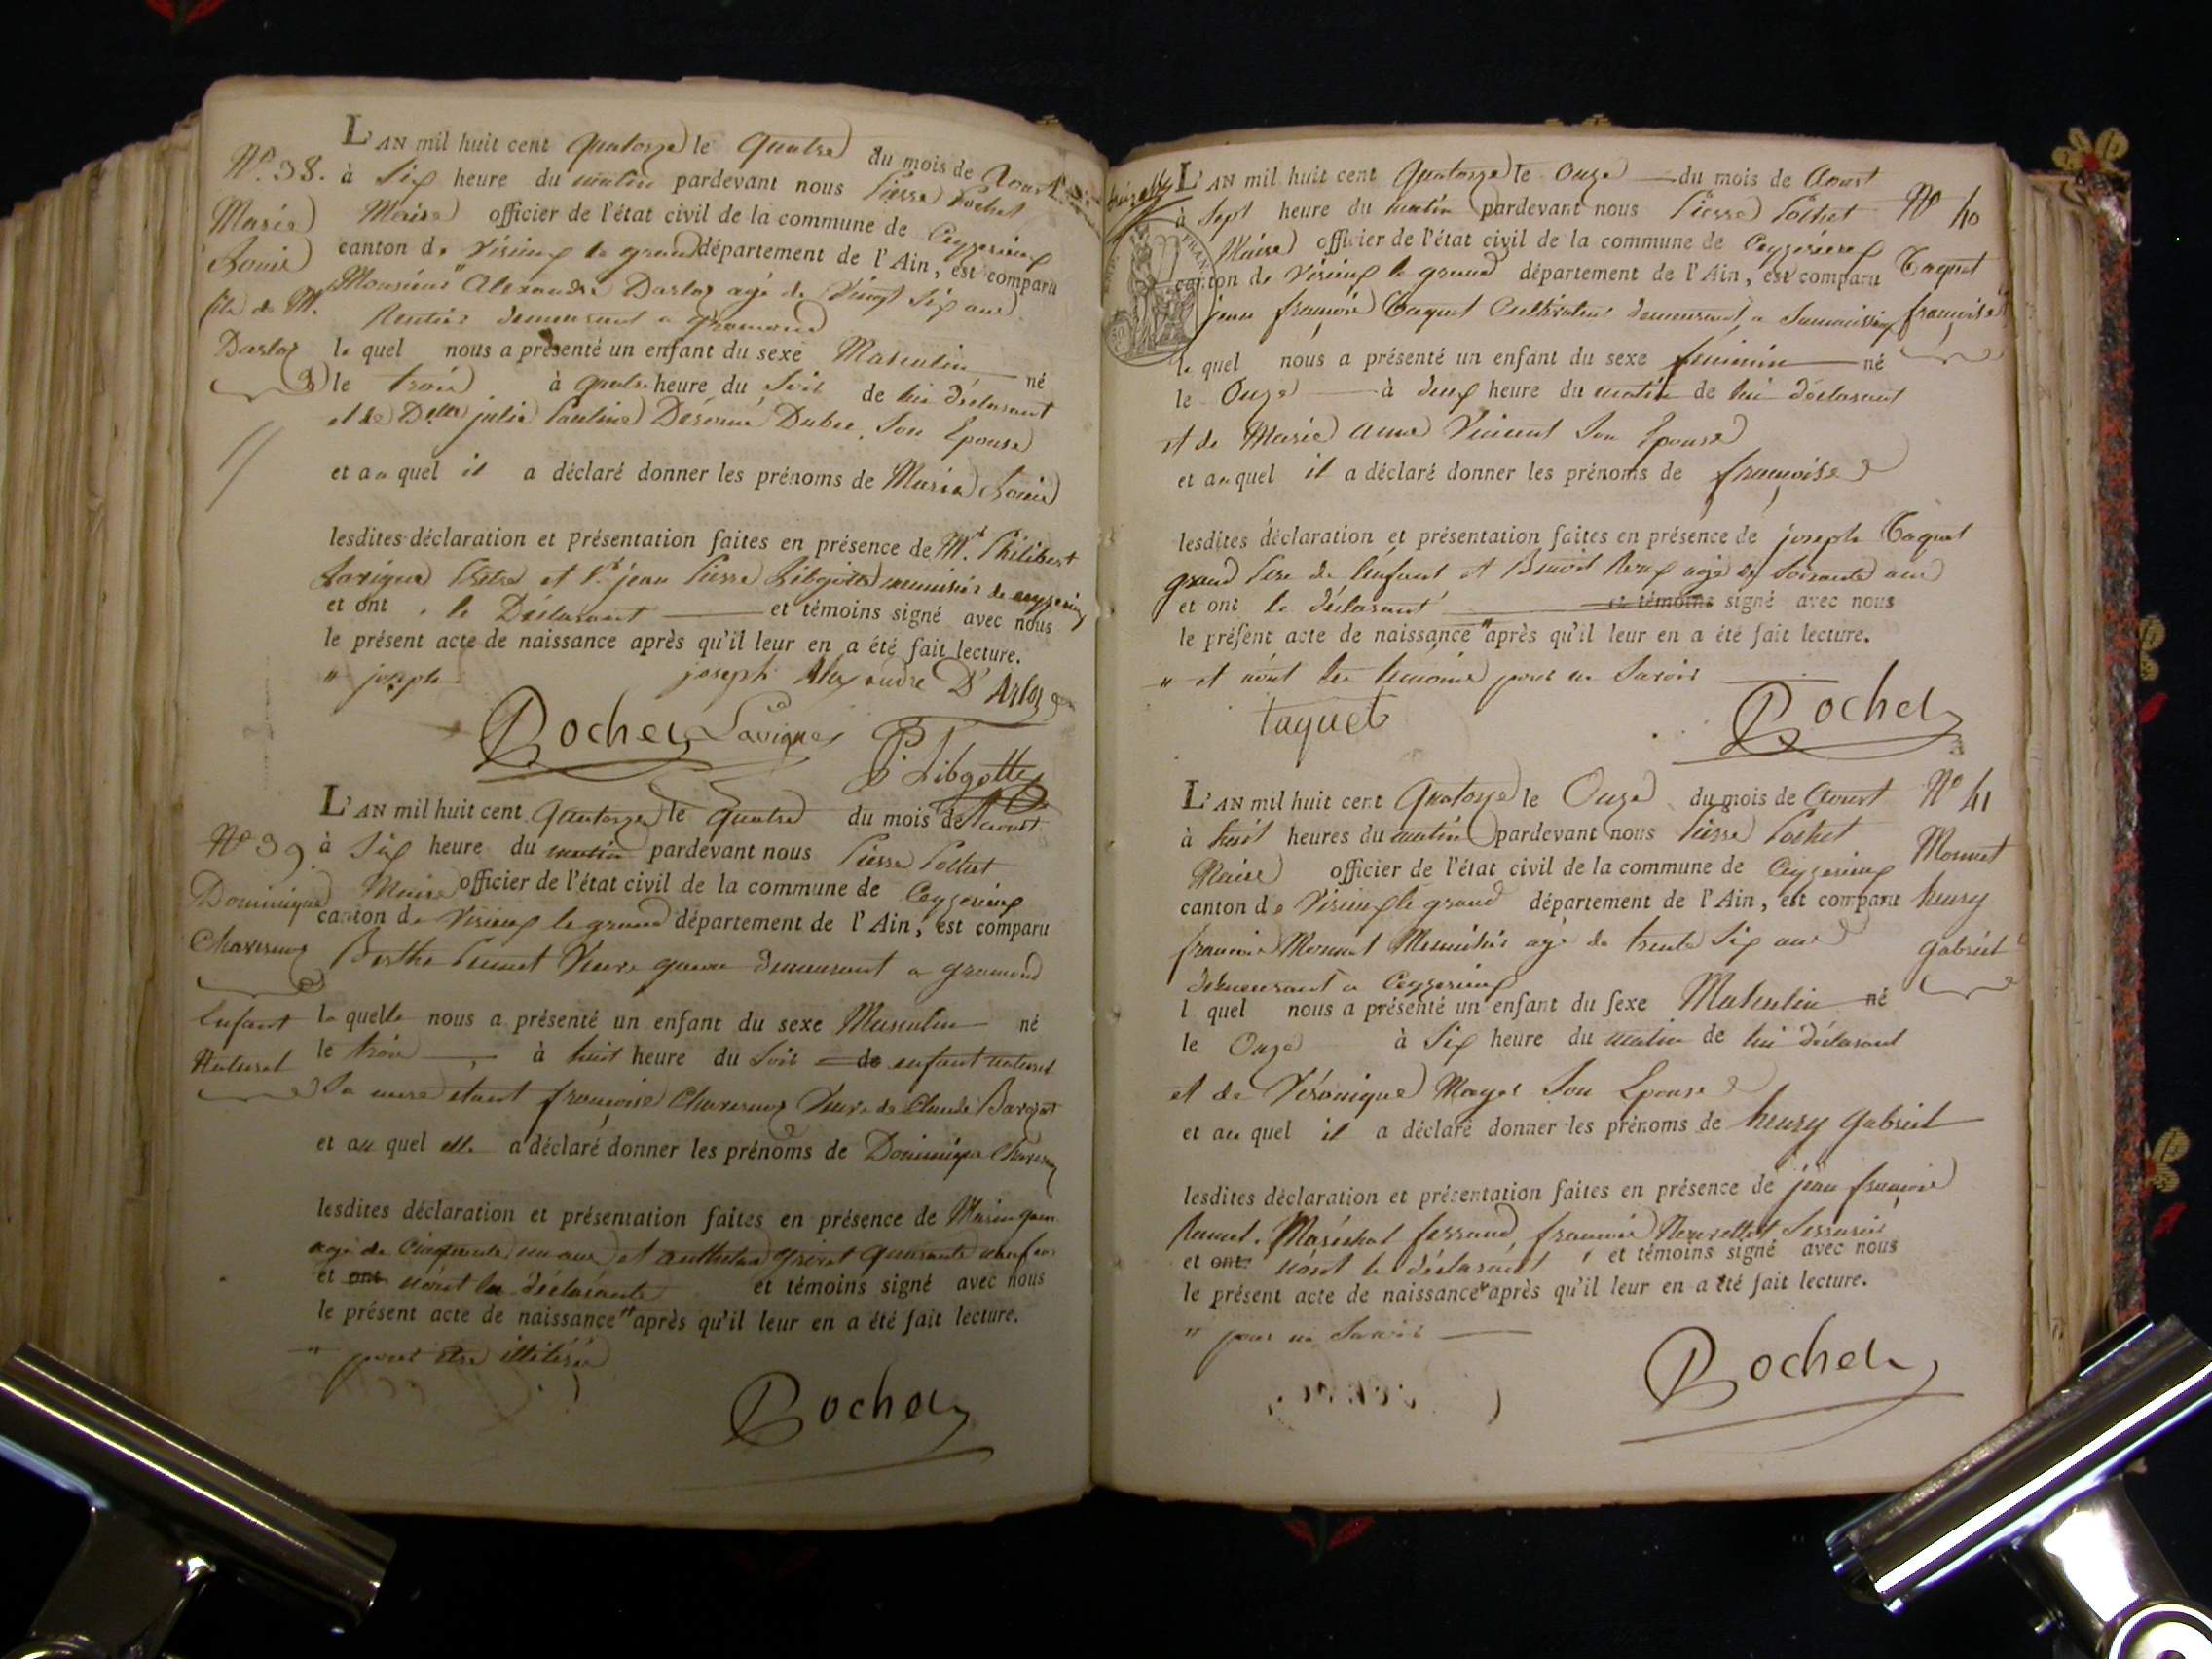 L'AN mil huit cent quatorze le quatre du mois de Aoust
N.º 38. à Six heure du matin pardevant nous Pierre Pochet
Marie Maire officier de l'état civil de la commune de Ceyzerieux
Louis canton de Virieux le grand département de l'Ain, est comparu
fils de M. Monsieur " Alexandre Darloz agé de Vingt Six ans
Rentier demeurant a gramond
Darloz le quel nous a présenté un enfant du sexe Masculin né
le trois à quatre heure du Soir de lui déclarant
et de D.elle julie Pauline Désirée Dubec Son Epouse
et au quel il a déclaré donner les prénoms de Marie Louis
lesdites déclaration et présentation faites en présence de M.r Philibert
Savigue Prêtre et S.r jean Pierre Libgotte menuisier de ceyzerieux
et ont le Déclarant et témoins signé avec nous
le présent acte de naissance après qu'il leur en a été fait lecture.
" joseph
joseph Alexandre D'Arloz
Pochet Savigue
P. Libgotte
L'AN mil huit cent Quatorze le quatre du mois de Aoust
Nº 39. à Six heure du matin pardevant nous Pierre Pochet
Dominique Maire officier de l'état civil de la commune de Ceyzerieux
canton de Virieux le grand département de l'Ain, est comparu
Charvenoz Berthe Veuve demeurant a gramond
Enfant la quelle nous a présenté un enfant du sexe Masculin né
Naturel le trois à huit heure du Soir de enfant naturel
Sa mere étant françoise Charvenoz Veuve de Claude
et au quel elle a déclaré donner les prénoms de Dominique Charvenoz
lesdites déclaration et présentation faites en présence de
agé de Cinquante un ans et Anthelme quarante neuf ans
et ont n'ont la déclarante et témoins signé avec nous
le présent acte de naissance " après qu'il leur en a été fait lecture.
" pour être illitérés
Pochet
L'AN mil huit cent Quatorze le Onze du mois de Aoust
à Sept heure du matin pardevant nous Pierre Pochet Nº 40
Maire officier de l'état civil de la commune de Ceyzerieux
canton de Virieux le grand département de l'Ain, est comparu Taquet
jean françois Taquet Cultivateur demeurant a françoise
le quel nous a présenté un enfant du sexe feminin né
le Onze à deux heure du matin de lui déclarant
et de Marie anne Vincent Son Epouse
et au quel il a déclaré donner les prénoms de françoise
lesdites déclaration et présentation faites en présence de joseph Taquet
grand Pere de l'enfant et Benoit Roux agé de Soixante ans
et ont le déclarant et témoins signé avec nous
le présent acte de naissance " après qu'il leur en a été fait lecture.
" et n'ont les temoins pour ne Savoir
Taquet Pochet
L'AN mil huit cent Quatorze le Onze du mois de Aoust Nº 41
à huit heures du matin pardevant nous Pierre Pochet
Maire officier de l'état civil de la commune de Ceyzerieux Monnet
canton de Virieux le grand département de l'Ain, est comparu henry
françois Monnet Menuisier agé de trente Six ans gabriel
demeurant a Ceyzerieux
l quel nous a présenté un enfant du sexe Masculin né
le Onze à Six heure du matin de lui déclarant
et de Véronique Mayer Son Epouse
et au quel il a déclaré donner les prénoms de henry gabriel
lesdites déclaration et présentation faites en présence de jean françois
Maréchal ferrand, françois Serrurier
et ont n'ont le déclarant et témoins signé avec nous
le présent acte de naissance " après qu'il leur en a été fait lecture.
" pour ne Savoir
Pochet